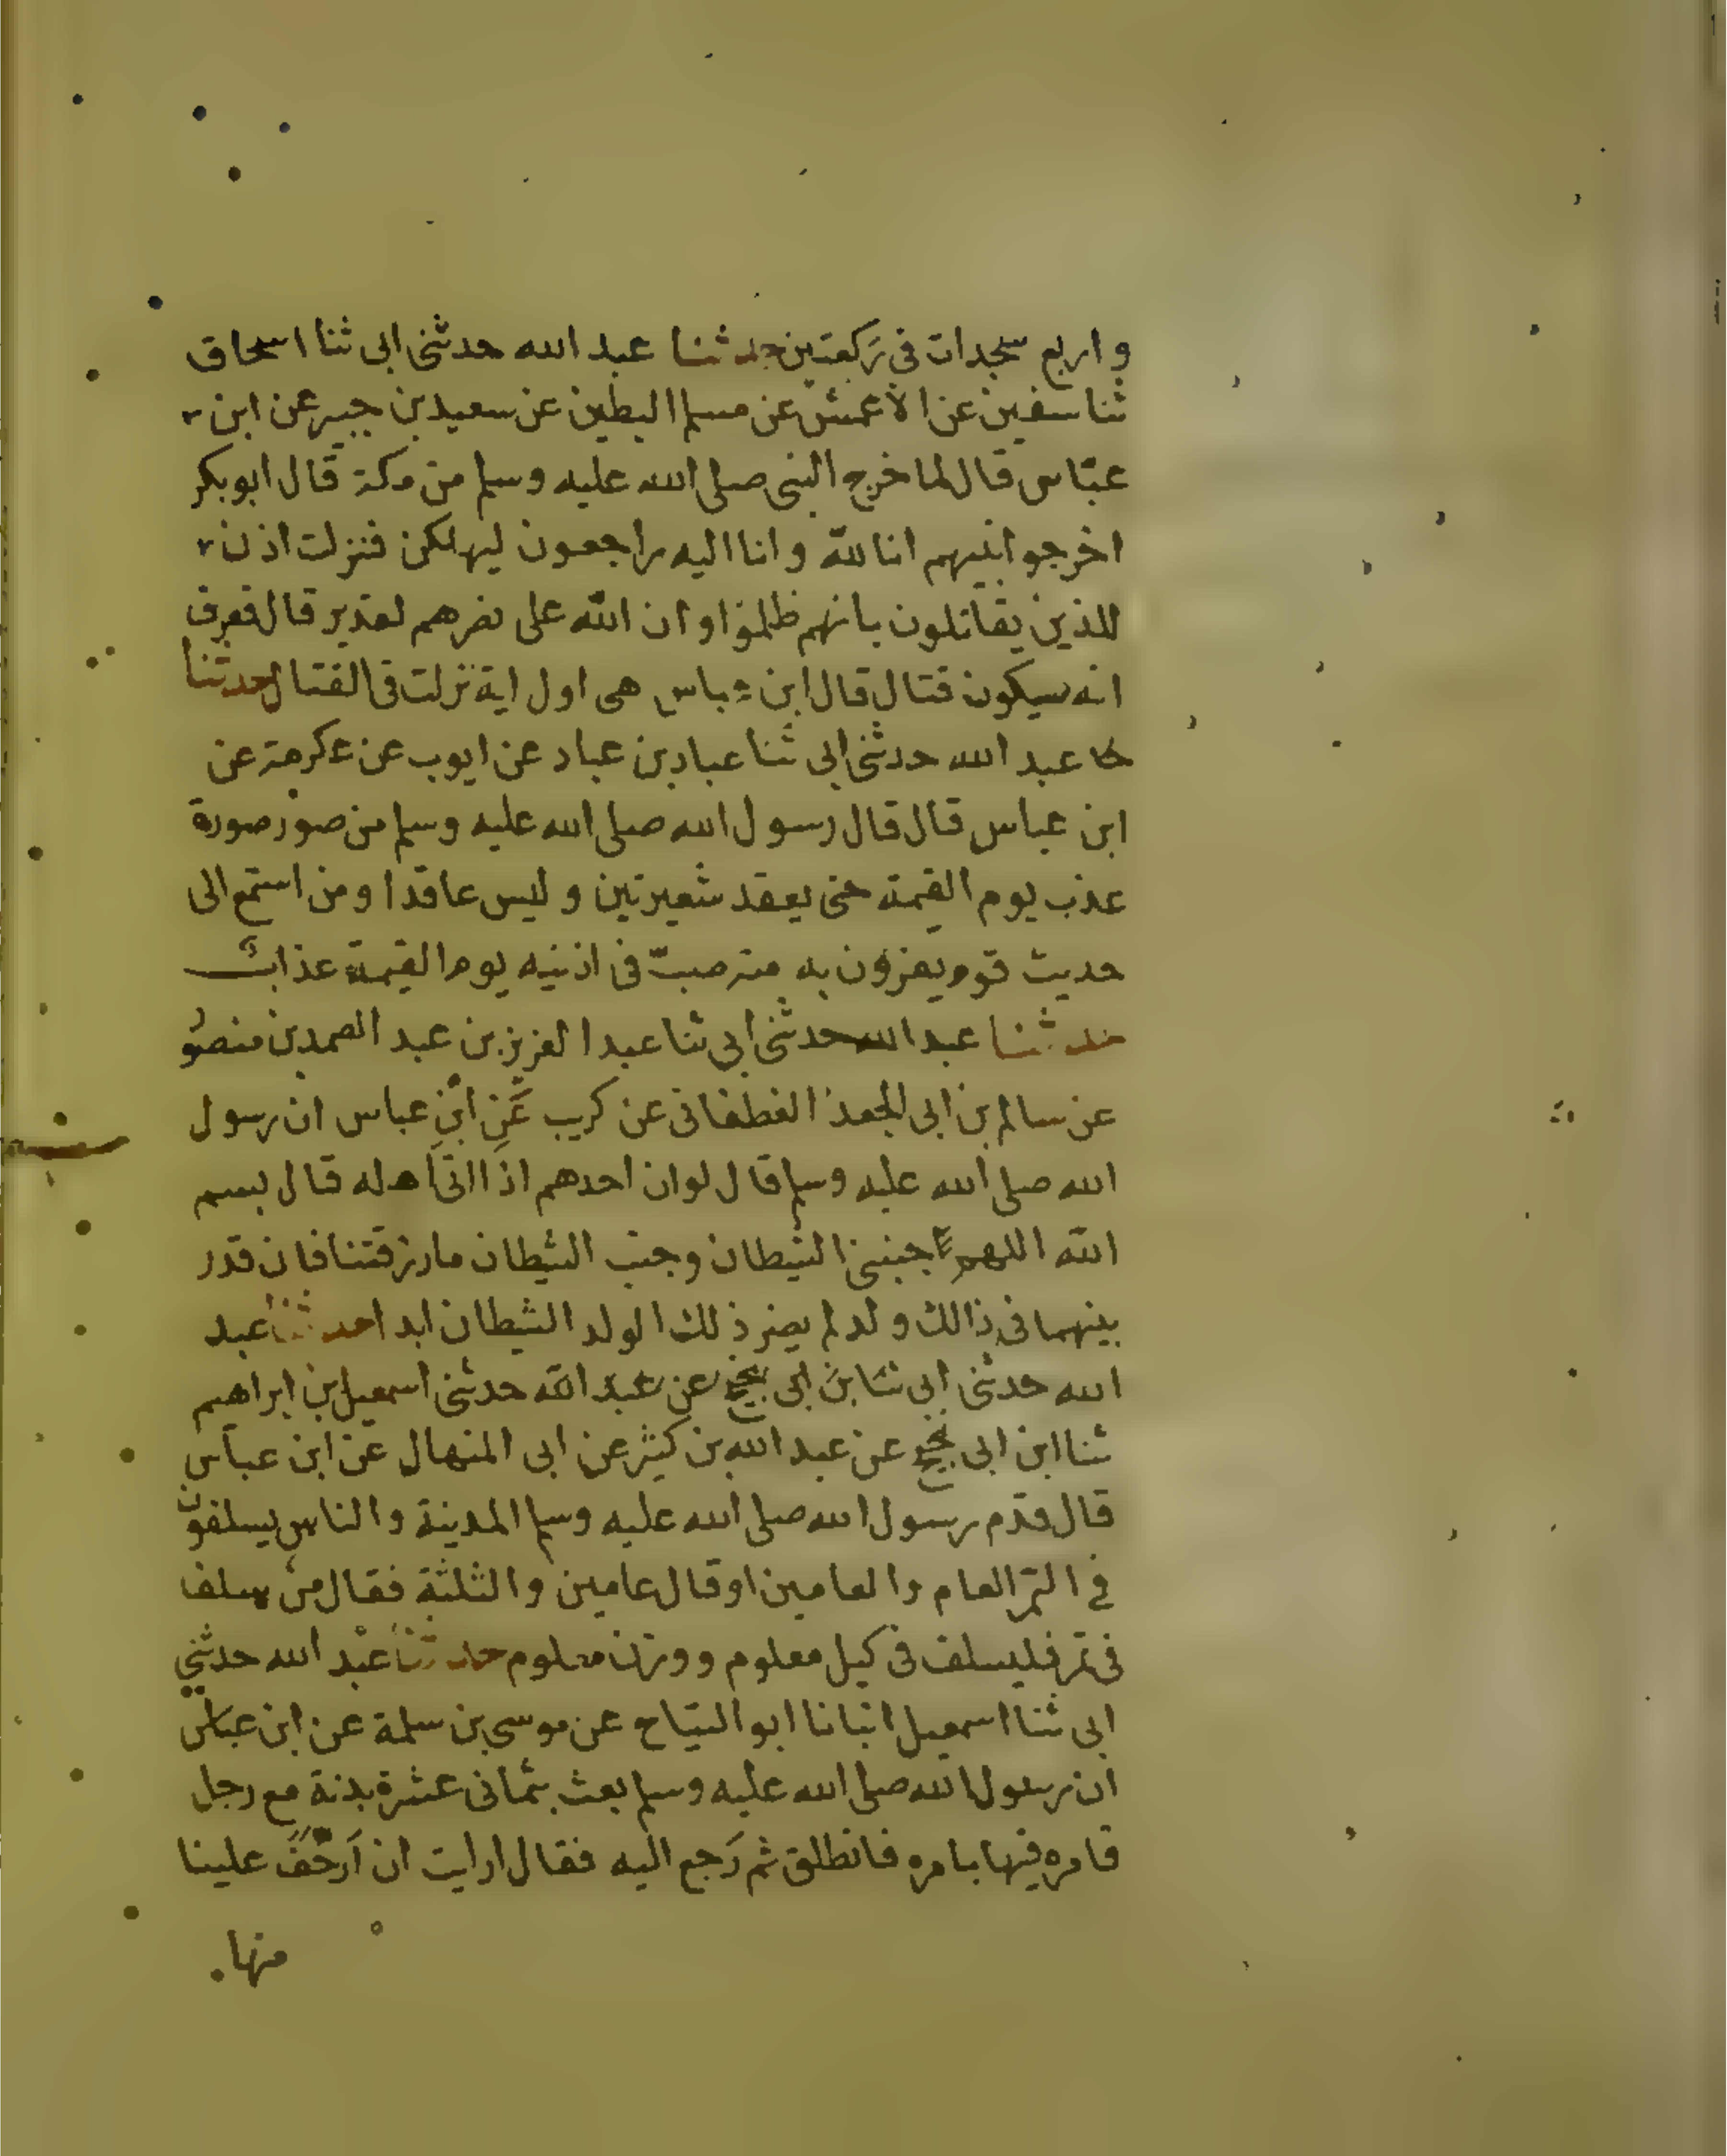 واربع سجدات في ركعتين حدثنا عبد الله حدثني ابى ثنا اسحاق
ثنا سفين عن الاعمش عن مسلم البطين عن سعيد بن جبير عن ابن
عباس قال لما خرج النبي صلى الله عليه وسلم من مكة قال ابو بكر
اخرجوا نبيهم انا لله وانا اليه راجعون ليهلكن فنزلت اذن
للذين يقاتلون بانهم ظلموا وان الله على نصرهم لقدير قال فعرف
انه سيكون قتال قال ابن عباس هى اول اية نزلت فى القتال حدثنا
عبد الله حدثني ابى ثنا عباد بن عباد عن ايوب عن عكرمة عن
ابن عباس قال قال رسول الله صلى الله عليه وسلم من صور صورة
عذب يوم القيمة حتى يعقد شعيرتين وليس عاقدا ومن استمع الى
حديث قوم يفرون به منه صب فى اذنيه يوم القيمة عذاب
حدثنا عبد الله حدثنى ابى ثنا عبد العزيز بن عبد الصمد بن منصور
عن سالم بن ابى الجعد الغطفانى عن كريب عن ابن عباس ان رسول
الله صلى الله عليه وسلم قال لو ان احدهم اذا اتى اهله قال بسم
الله اللهم جنبنى الشيطان وجنب الشيطان ما رزقتنا فان قدر
بينهما فى ذالك ولد لم يضر ذلك الولد الشيطان ابدا حدثنا عبد
الله حدثنى ابى ثنا بن ابى نجيح عن عبد الله حدثنى اسمعيل بن ابراهيم
ثنا ابن ابى نجيح عن عبد الله بن كثير عن ابى المنهال عن ابن عباس
قال قدم رسول الله صلى الله عليه وسلم المدينة والناس يسلفون
في التمر العام والعامين او قال عامين والثلثة فقال من سلف
فى تمر فليسلف فى كيل معلوم ووزن معلوم حدثنا عبد الله حدثني
ابى ثنا اسمعيل انبانا ابو التياح عن موسى بن سلمة عن ابن عباس
ان رسول الله صلى الله عليه وسلم بعث بثمانى عشرة بدنة مع رجل
فامره فيها بامره فانطلق ثم رجع اليه فقال ارايت ان ارحف علينا
منها